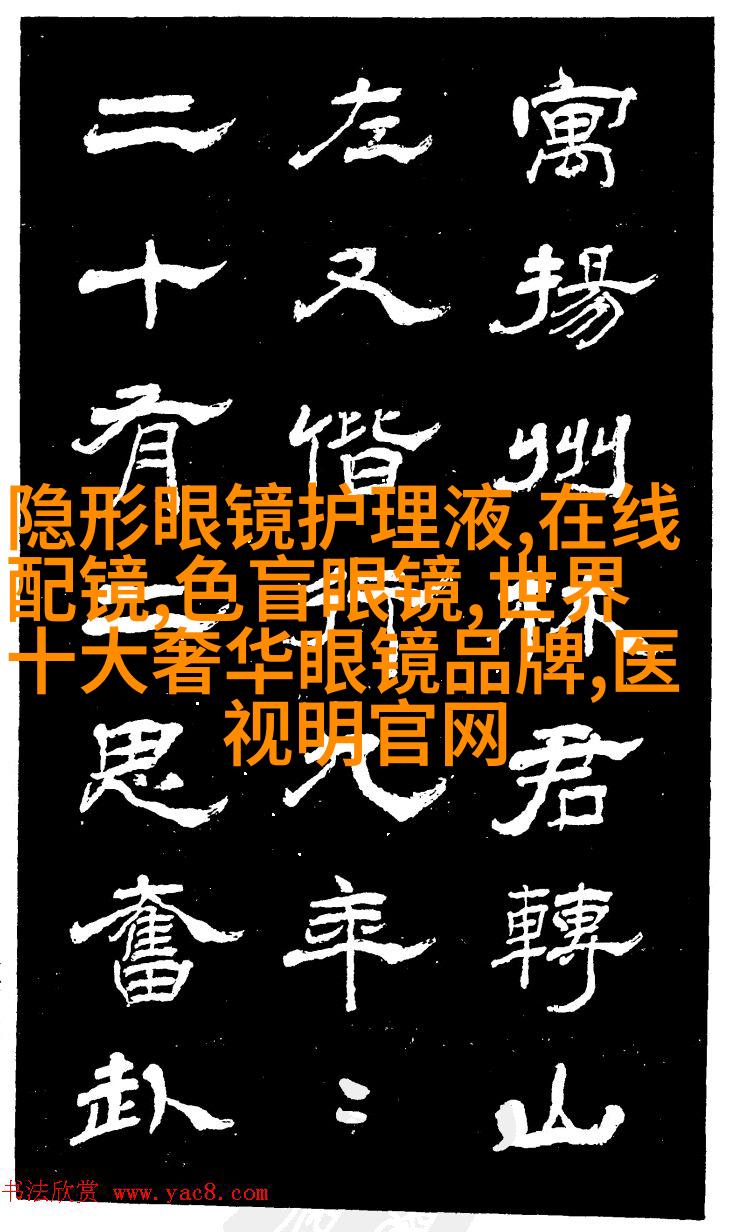 寓揚州林君轉山
左又偕行九年〻
二十有思奮赴
隐形眼镜护理液,在线
配镜,色盲眼镜,世界
十大奢华眼镜品牌,医
视明官网
书法欣赏 www.yac8.com